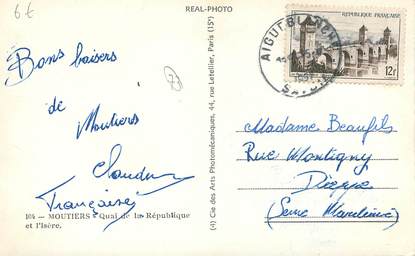 6 €
REAL-PHOTO
Bons baisers
de
Moutiers
Claudine
Françoise
104 — MOUTIERS - Quai de la République
et l'Isère.
(4) Cie des Arts Photomécaniques, 44, rue Letellier, Paris (15e)
AIGUEBLANCHE
SAVOIE
REPUBLIQUE FRANÇAISE
12f
Madame Beaufils
Rue Montigny
Dieppe
(Seine Maritime)